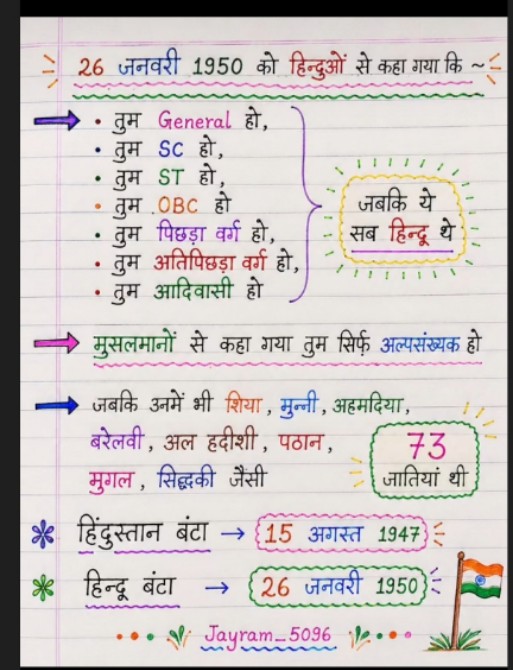 26 जनवरी 1950 को हिन्दुओं से कहा गया कि ~
• तुम General हो,
• तुम SC हो,
• तुम ST हो,
• तुम OBC हो
• तुम पिछड़ा वर्ग हो,
• तुम अतिपिछड़ा वर्ग हो,
• तुम आदिवासी हो
जबकि ये
सब हिन्दू थे
मुसलमानों से कहा गया तुम सिर्फ अल्पसंख्यक हो
जबकि उनमें भी शिया, मुन्नी, अहमदिया,
बरेलवी, अल हदीशी, पठान,
मुगल, सिद्धकी जैंसी
73
जातियां थी
हिंदुस्तान बंटा → 15 अगस्त 1947
हिन्दू बंटा → 26 जनवरी 1950
Jayram_5096